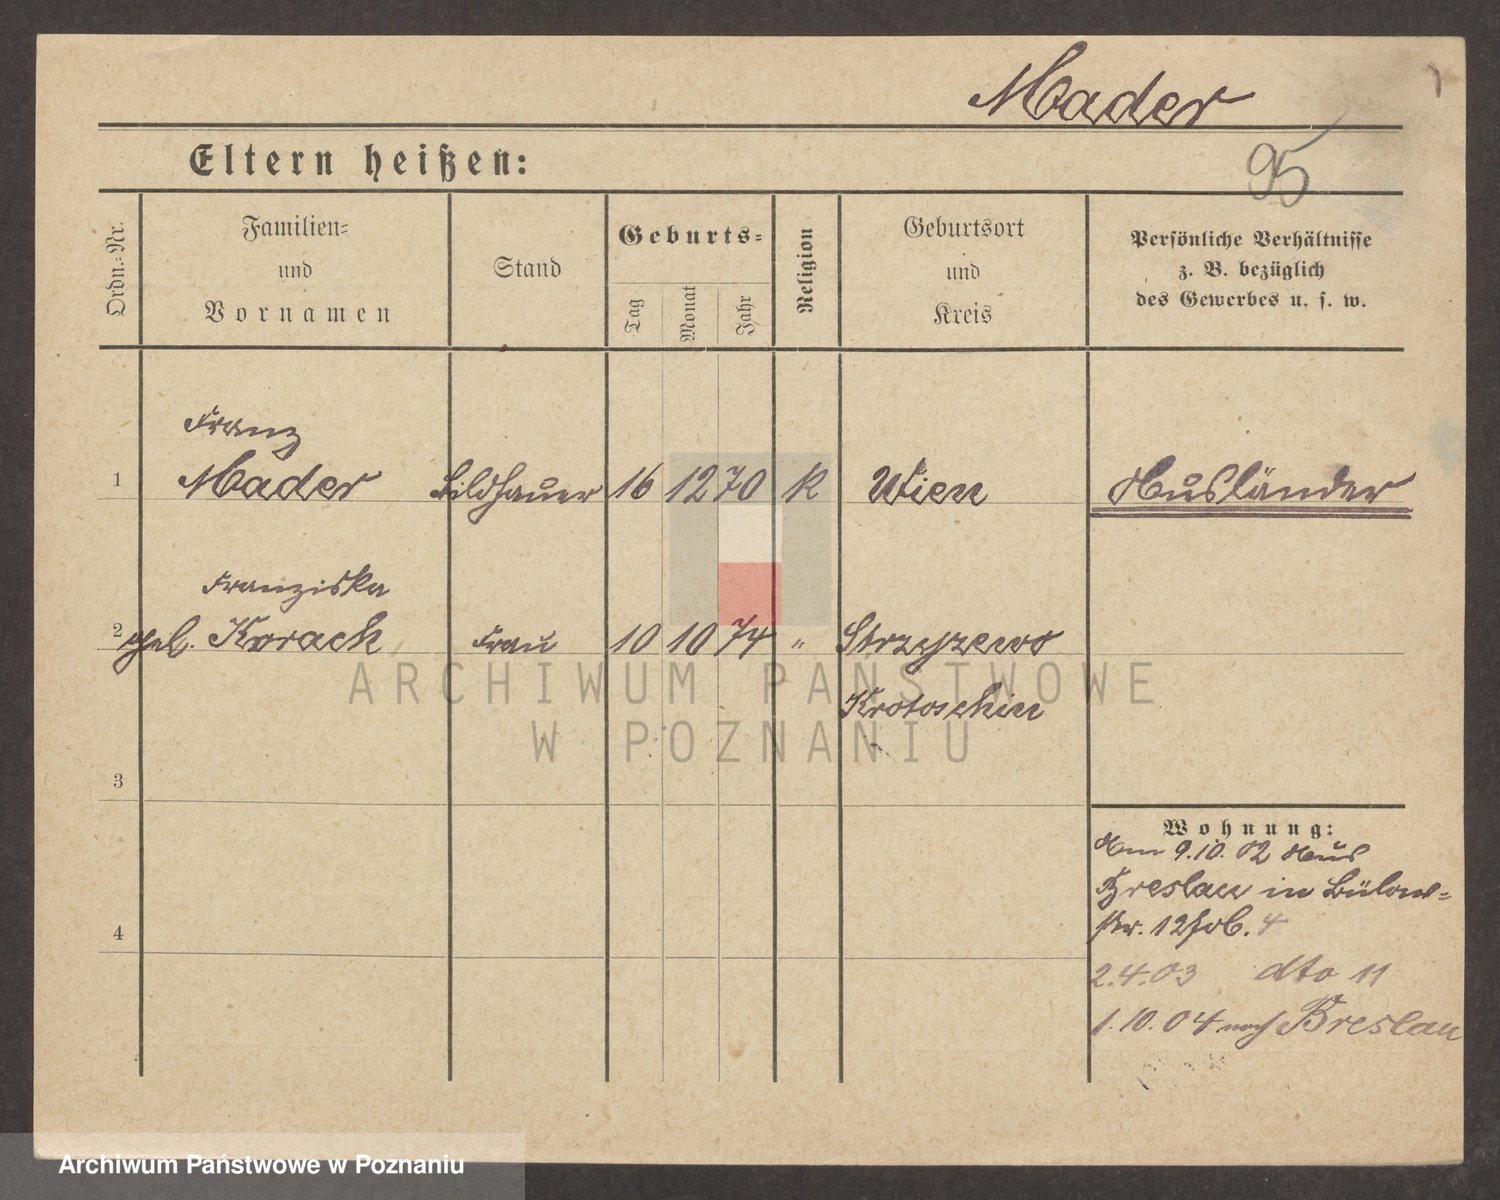 Mader
95
Eltern heißen:
Ordn.-Nr.
Familien-
und
Vornamen
Stand
Geburts-
Tag
Monat
Jahr
Religion
Geburtsort
und
Kreis
Persönliche Verhältnisse
z. B. bezüglich
des Gewerbes u. s. w.
Franz
1 Mader Bildhauer 16 12 70 K Wien Ausländer
Franziska
2 geb. Korach Frau 10 10 74 " Strzyzewo
Krotoschin
3
4
Wohnung:
Am 9.10.02 aus
Breslau in Bülow-
str. 12 4
2.4.03 dto 11
1.10.04 nach Breslau
ARCHIWUM PAŃSTWOWE
W POZNANIU
Archiwum Państwowe w Poznaniu